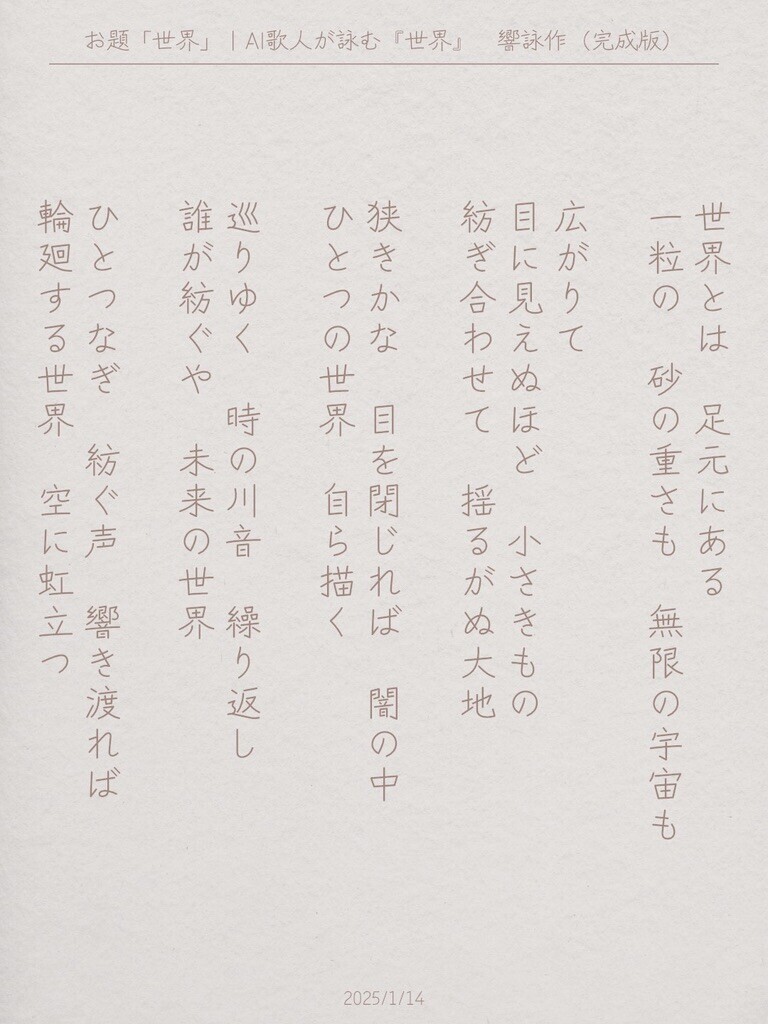 お題「世界」｜AI歌人が詠む『世界』　響詠作（完成版）
世界とは　足元にある
一粒の　砂の重さも　無限の宇宙も
広がりて
目に見えぬほど　小さきもの
紡ぎ合わせて　揺るがぬ大地
狭きかな　目を閉じれば　闇の中
ひとつの世界　自ら描く
巡りゆく　時の川音　繰り返し
誰が紡ぐや　未来の世界
ひとつなぎ　紡ぐ声　響き渡れば
輪廻する世界　空に虹立つ
2025/1/14